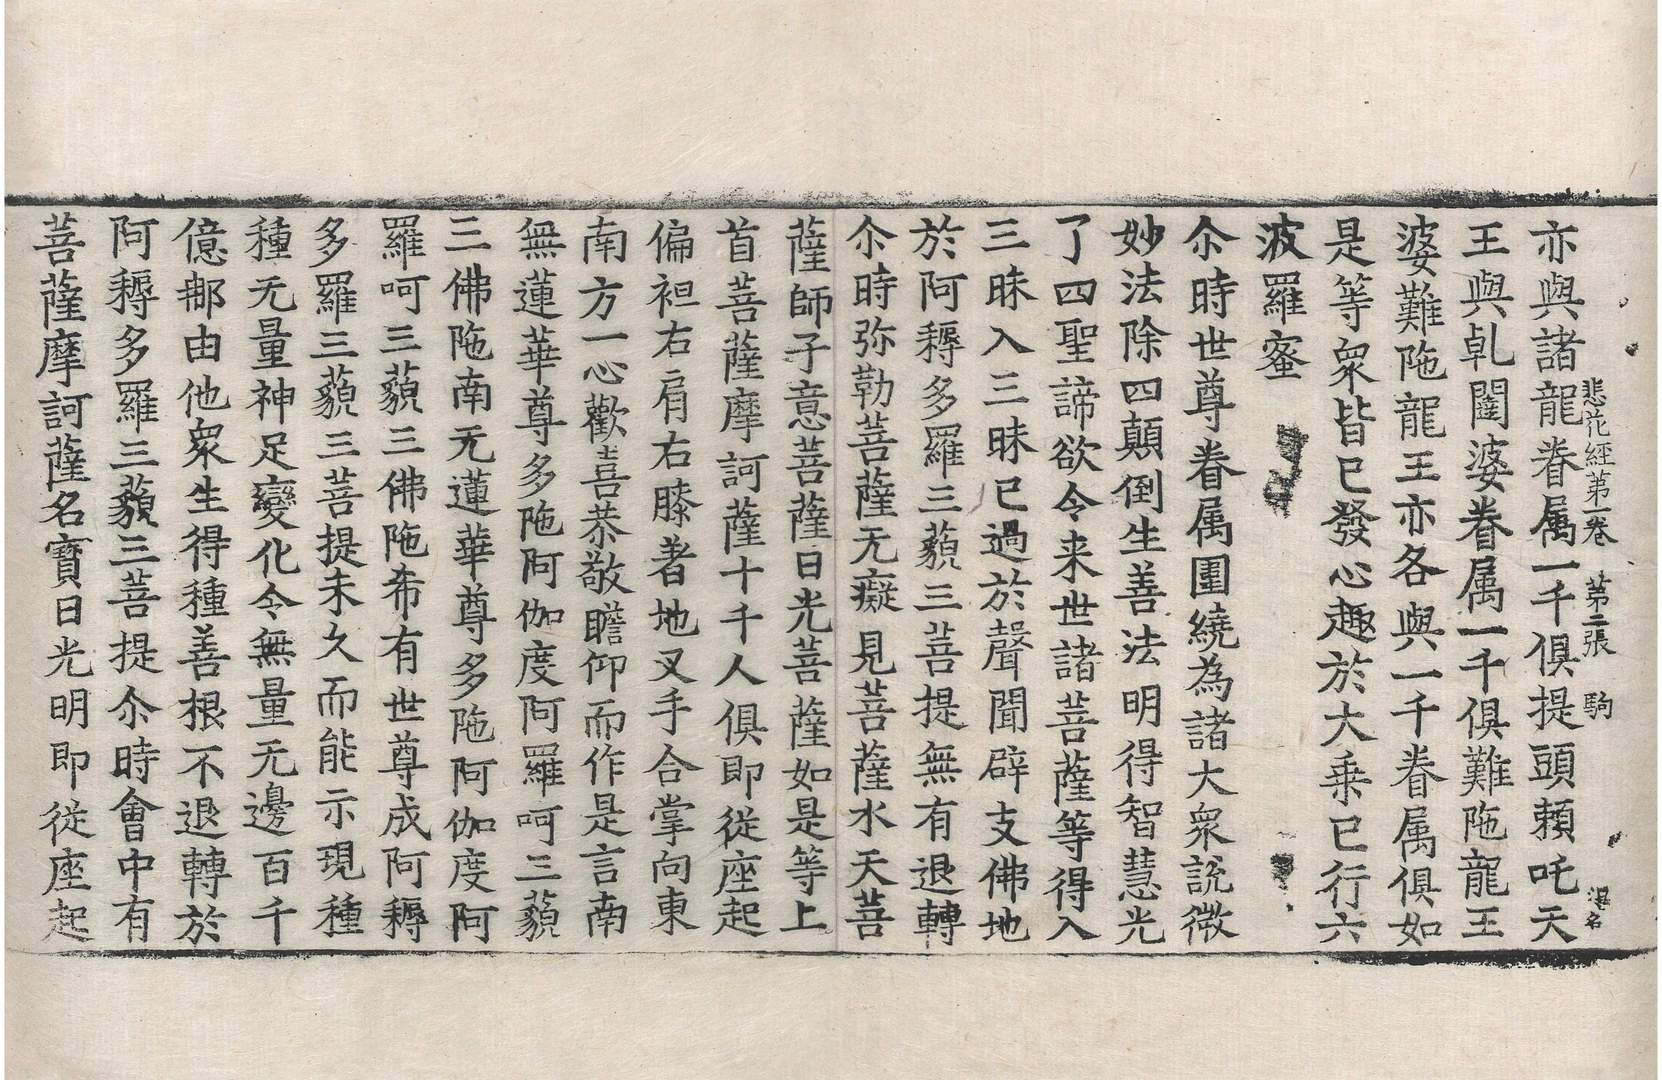 悲花經第一卷 第二張 駒
亦與諸龍眷属一千俱提頭頼吒天
王與乹闥婆眷属一千俱難陁龍王
婆難陁龍王亦各與一千眷属俱如
是等衆皆已發心趣於大乗已行六
波羅蜜
尒時世尊眷属圍繞為諸大衆說微
妙法除四顛倒生善法明得智慧光
了四聖諦欲令来世諸菩薩等得入
三昧入三昧已過於聲聞辟支佛地
於阿耨多羅三藐三菩提無有退轉
尒時弥勒菩薩无癡見菩薩水天菩
薩師子意菩薩日光菩薩如是等上
首菩薩摩訶薩十千人俱即從座起
偏袒右肩右膝著地叉手合掌向東
南方一心歡喜恭敬瞻仰而作是言南
無蓮華尊多陁阿伽度阿羅呵三藐
三佛陁南无蓮華尊多陁阿伽度阿
羅呵三藐三佛陁希有世尊成阿耨
多羅三藐三菩提未久而能示現種
種无量神足變化令無量无邊百千
億那由他衆生得種善根不退轉於
阿耨多羅三藐三菩提尒時會中有
菩薩摩訶薩名寳日光明即從座起